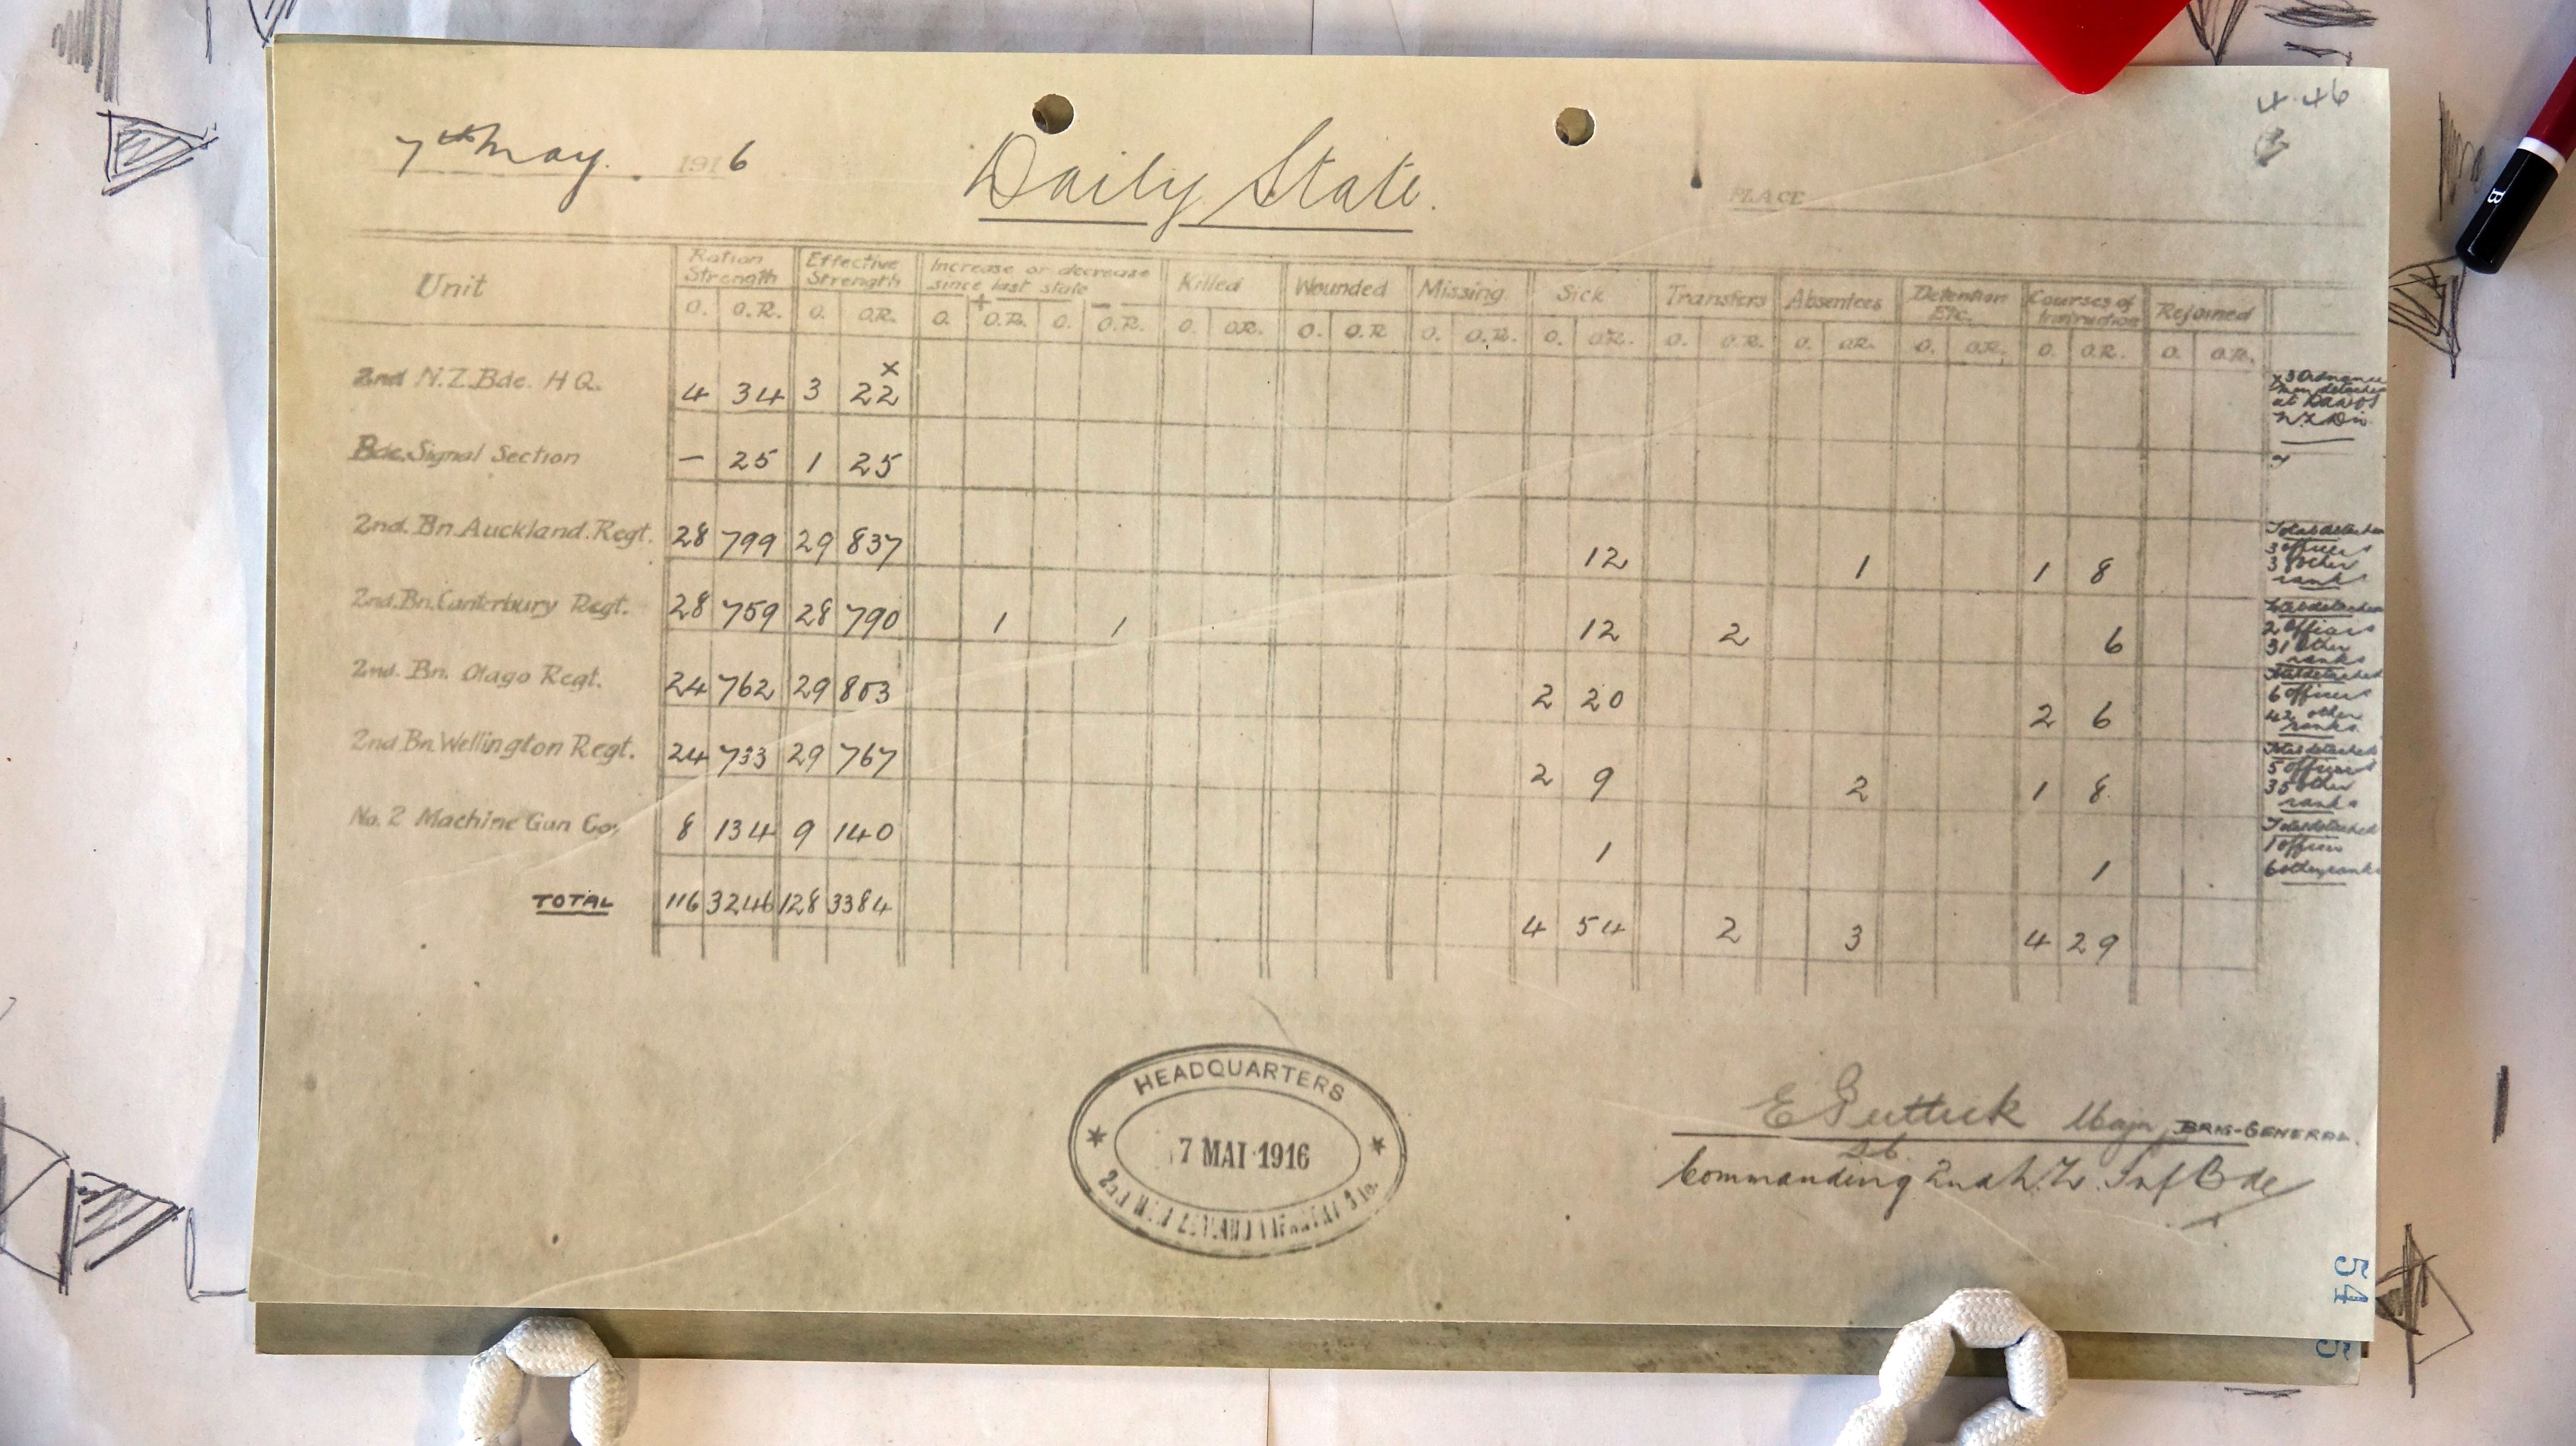 4.46
7th May. 1916
Daily State.
PLACE
Unit Ration Strength Effective Strength Increase or decrease since last state + - Killed Wounded Missing Sick Transfers Absentees Detention Etc. Courses of Instruction Rejoined
O. O.R. O. O.R. O. O.R. O. O.R. O. O.R. O. O.R O. O.R. O. O.R. O. O.R. O. O.R. O. O.R. O. O.R. O. O.R.
2nd N.Z. Bde. H Q. 4 34 3 22 x
x 3 Ordnance
men detached
at DADOS
N.Z Div
Bde. Signal Section — 25 1 25
2nd. Bn. Auckland. Regt. 28 799 29 837 12 1 1 8
Total detached
3 officers
38 other
ranks
2nd. Bn. Canterbury Regt. 28 759 28 790 1 1 12 2 6
Total detached
2 Officers
31 other
ranks
2nd. Bn. Otago Regt. 24 762 29 803 2 20 2 6
Total detached
6 officers
42 other
ranks
2nd Bn. Wellington Regt. 24 733 29 767 2 9 2 1 8
Total detached
5 officers
35 other
ranks
No. 2 Machine Gun Coy 8 134 9 140 1 1
Total detached
1 officer
6 other ranks
TOTAL 116 3246 128 3384 4 54 2 3 4 29
HEADQUARTERS
7 MAI 1916
E Puttick Major, BRIG-GENERAL.
Commanding 2nd N.Z. Inf Bde
54
5
B